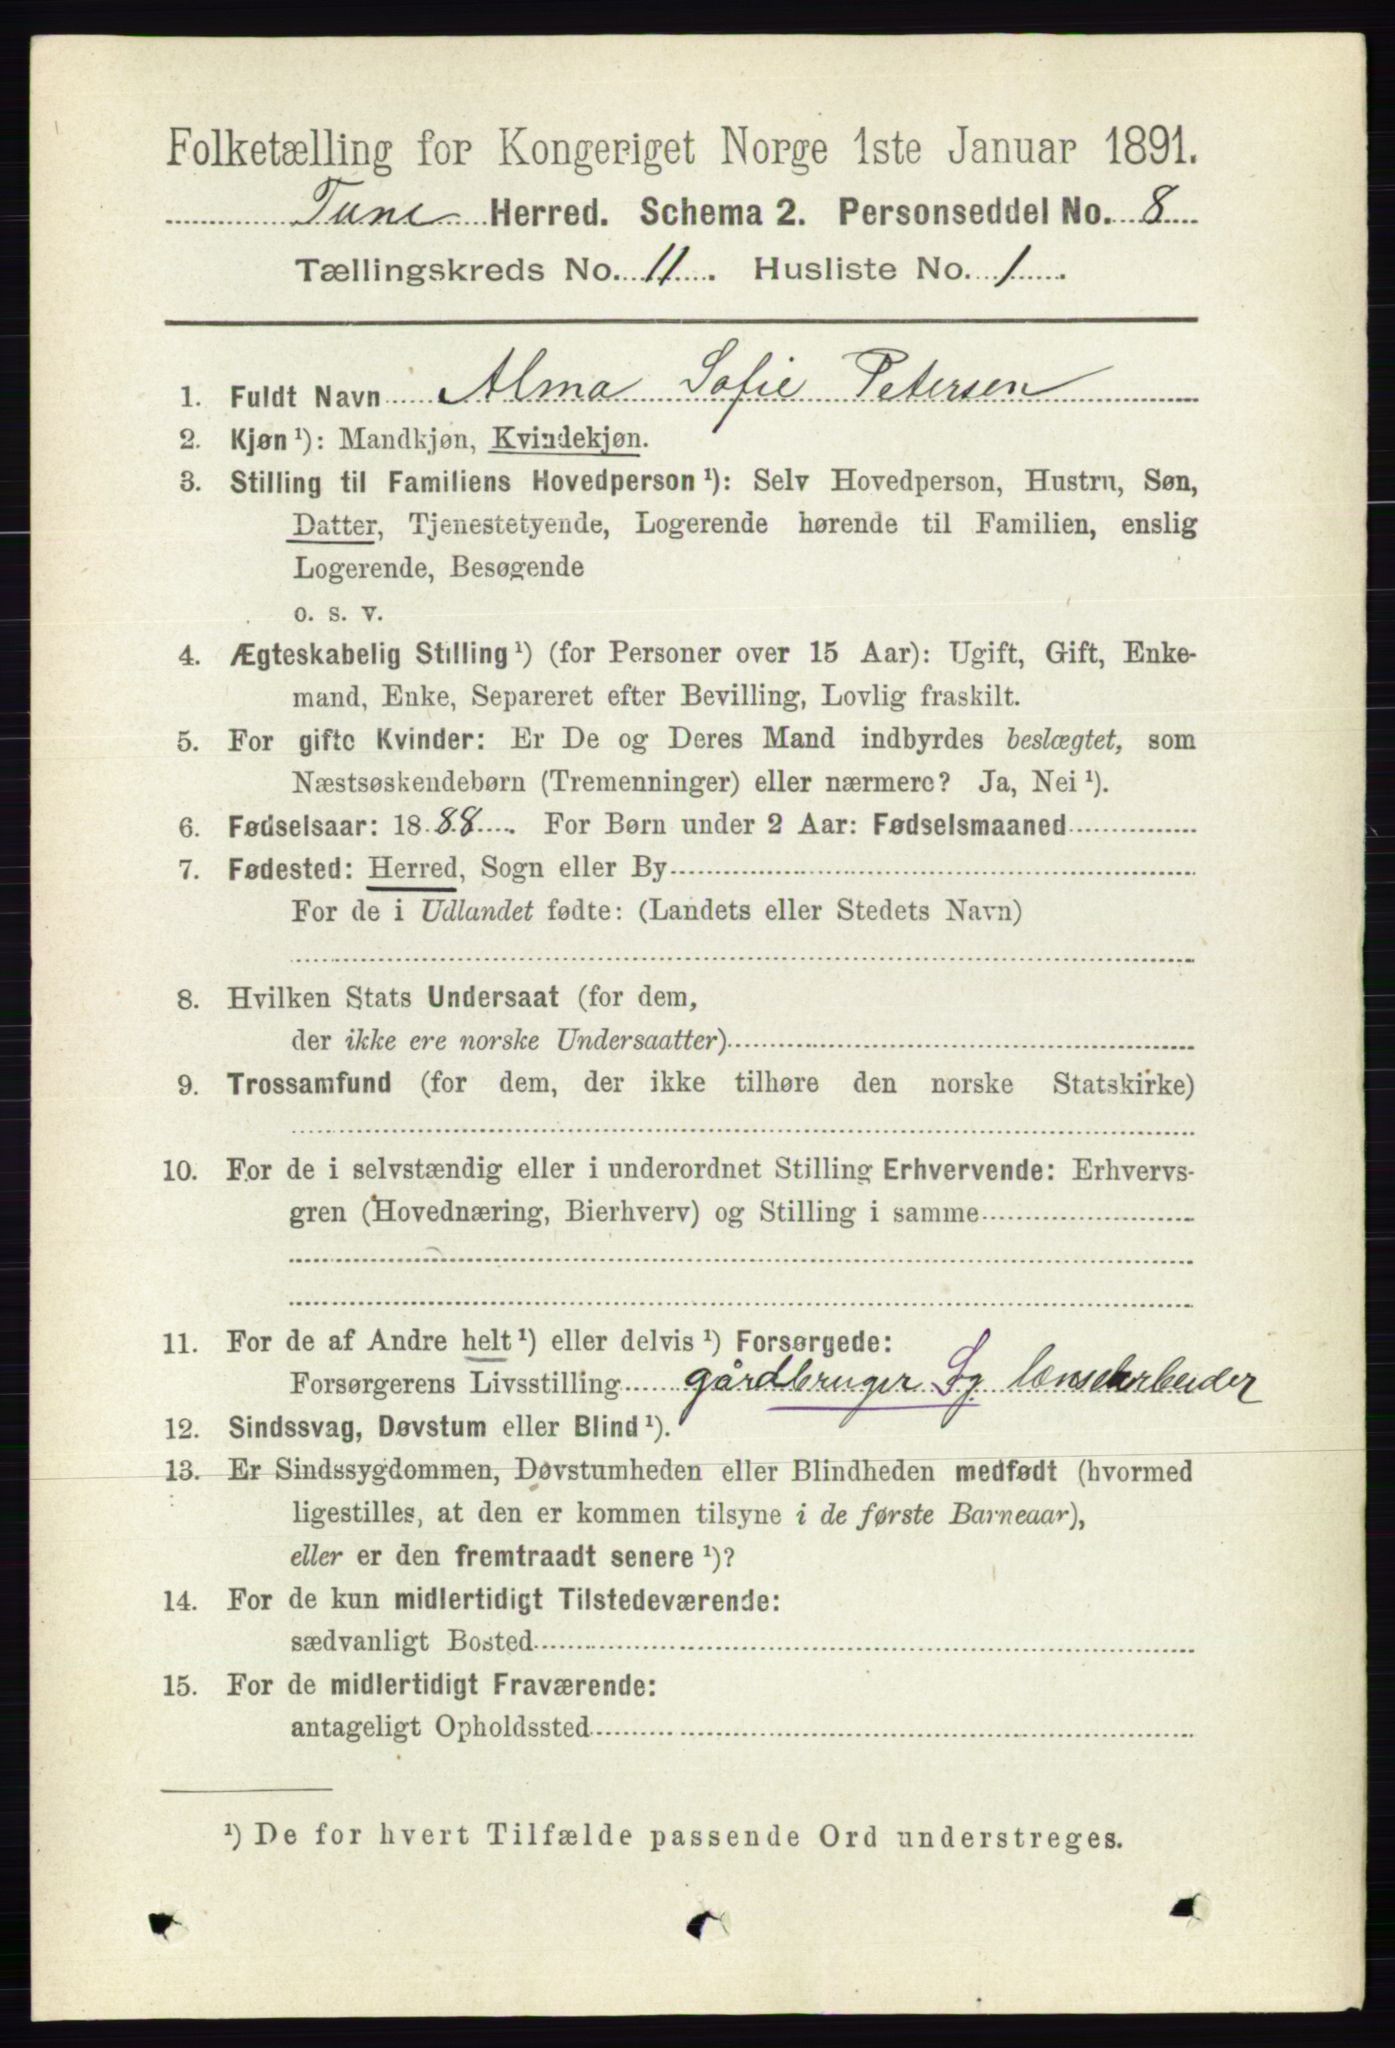 Folketælling for Kongeriget Norge 1ste Januar 1891.
Tune Herred. Schema 2. Personseddel No. 8
Tællingskreds No. 11. Husliste No. 1.
1. Fuldt Navn Alma Sofie Petersen
2. Kjøn ¹): Mandkjøn, Kvindekjøn.
3. Stilling til Familiens Hovedperson ¹): Selv Hovedperson, Hustru, Søn,
Datter, Tjenestetyende, Logerende hørende til Familien, enslig
Logerende, Besøgende
o. s. v.
4. Ægteskabelig Stilling ¹) (for Personer over 15 Aar): Ugift, Gift, Enke-
mand, Enke, Separeret efter Bevilling, Lovlig fraskilt.
5. For gifte Kvinder: Er De og Deres Mand indbyrdes beslægtet, som
Næstsøskendebørn (Tremenninger) eller nærmere? Ja, Nei ¹).
6. Fødselsaar: 1888. For Børn under 2 Aar: Fødselsmaaned
7. Fødested: Herred, Sogn eller By
For de i Udlandet fødte: (Landets eller Stedets Navn)
8. Hvilken Stats Undersaat (for dem,
der ikke ere norske Undersaatter)
9. Trossamfund (for dem, der ikke tilhøre den norske Statskirke)
10. For de i selvstændig eller i underordnet Stilling Erhvervende: Erhvervs-
gren (Hovednæring, Bierhverv) og Stilling i samme
11. For de af Andre helt ¹) eller delvis ¹) Forsørgede:
Forsørgerens Livsstilling gårdbruger Sg lensearbeider
12. Sindssvag, Døvstum eller Blind ¹).
13. Er Sindssygdommen, Døvstumheden eller Blindheden medfødt (hvormed
ligestilles, at den er kommen tilsyne i de første Barneaar),
eller er den fremtraadt senere ¹)?
14. For de kun midlertidigt Tilstedeværende:
sædvanligt Bosted
15. For de midlertidigt Fraværende:
antageligt Opholdssted
¹) De for hvert Tilfælde passende Ord understreges.